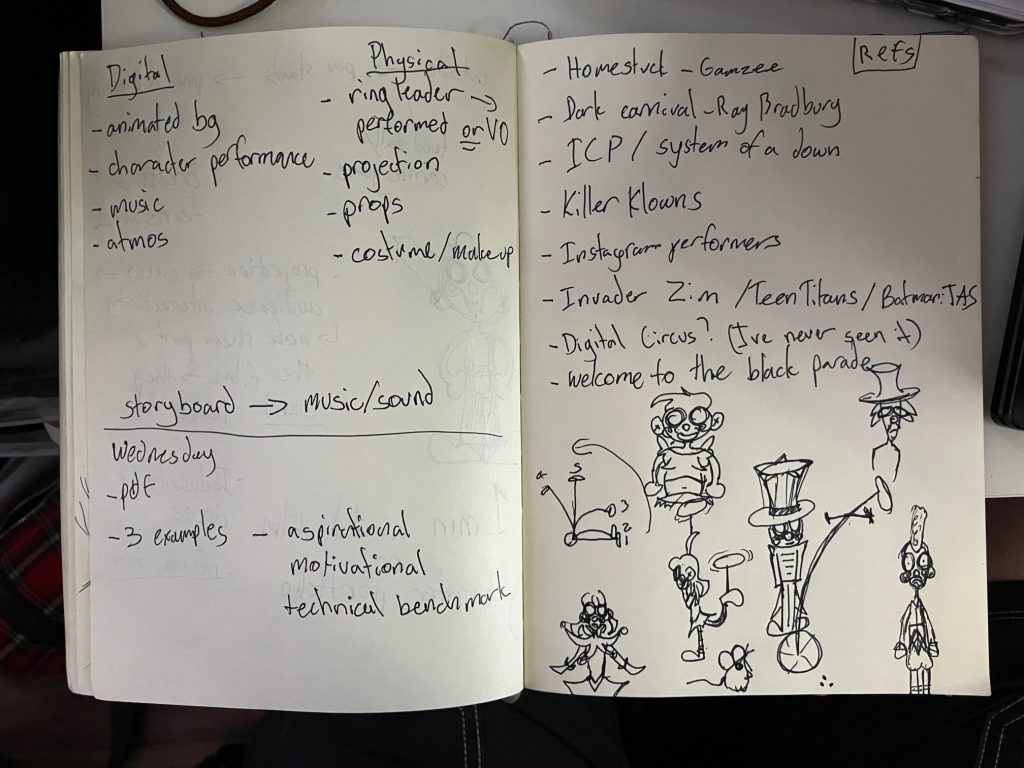 Digital
- animated bg
- character performance
- music
- atmos
Physical
- ringleader →
performed or VO
- projection
- props
- costume/makeup
storyboard → music/sound
Wednesday
- pdf
- 3 examples - aspirational
motivational
technical benchmark
Refs
- Homestuck - Gamzee
- Dark carnival - Ray Bradbury
- ICP / system of a down
- Killer Klowns
- Instagram performers
- Invader Zim / Teen Titans / Batman: TAS
- Digital Circus? (I've never seen it)
- welcome to the black parade
4
5
3
2
1